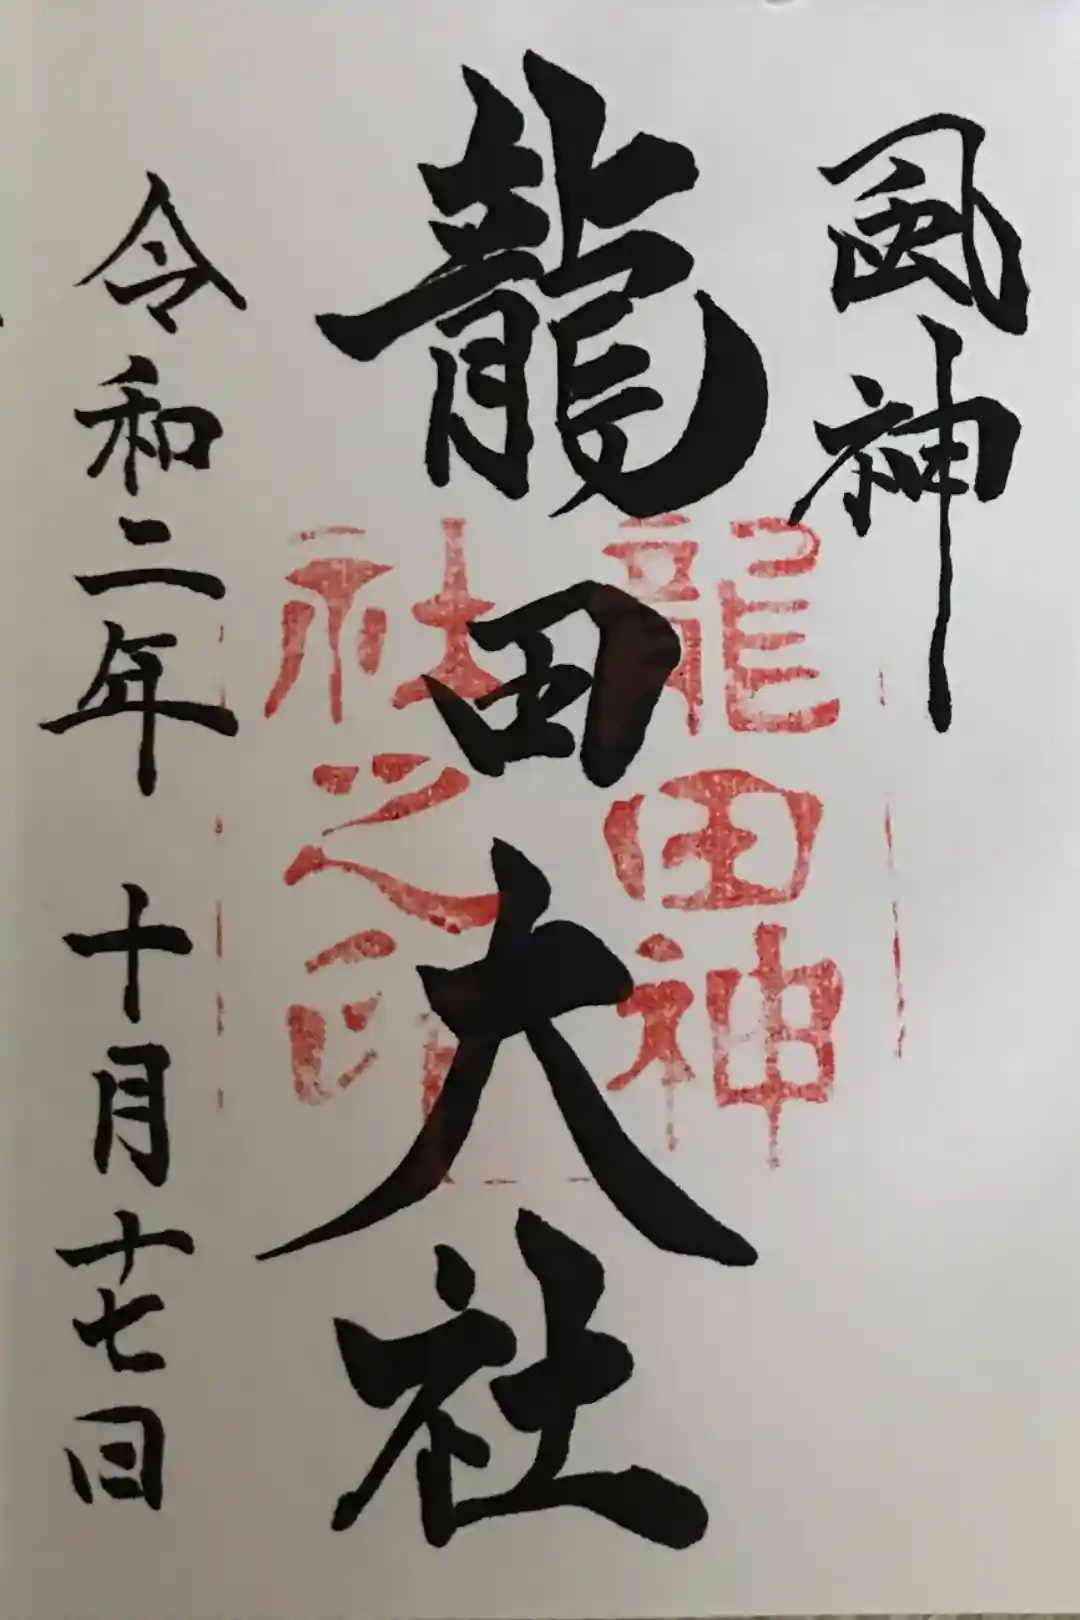 風神
龍田大社
龍田神
社之印
令和二年 十月十七日